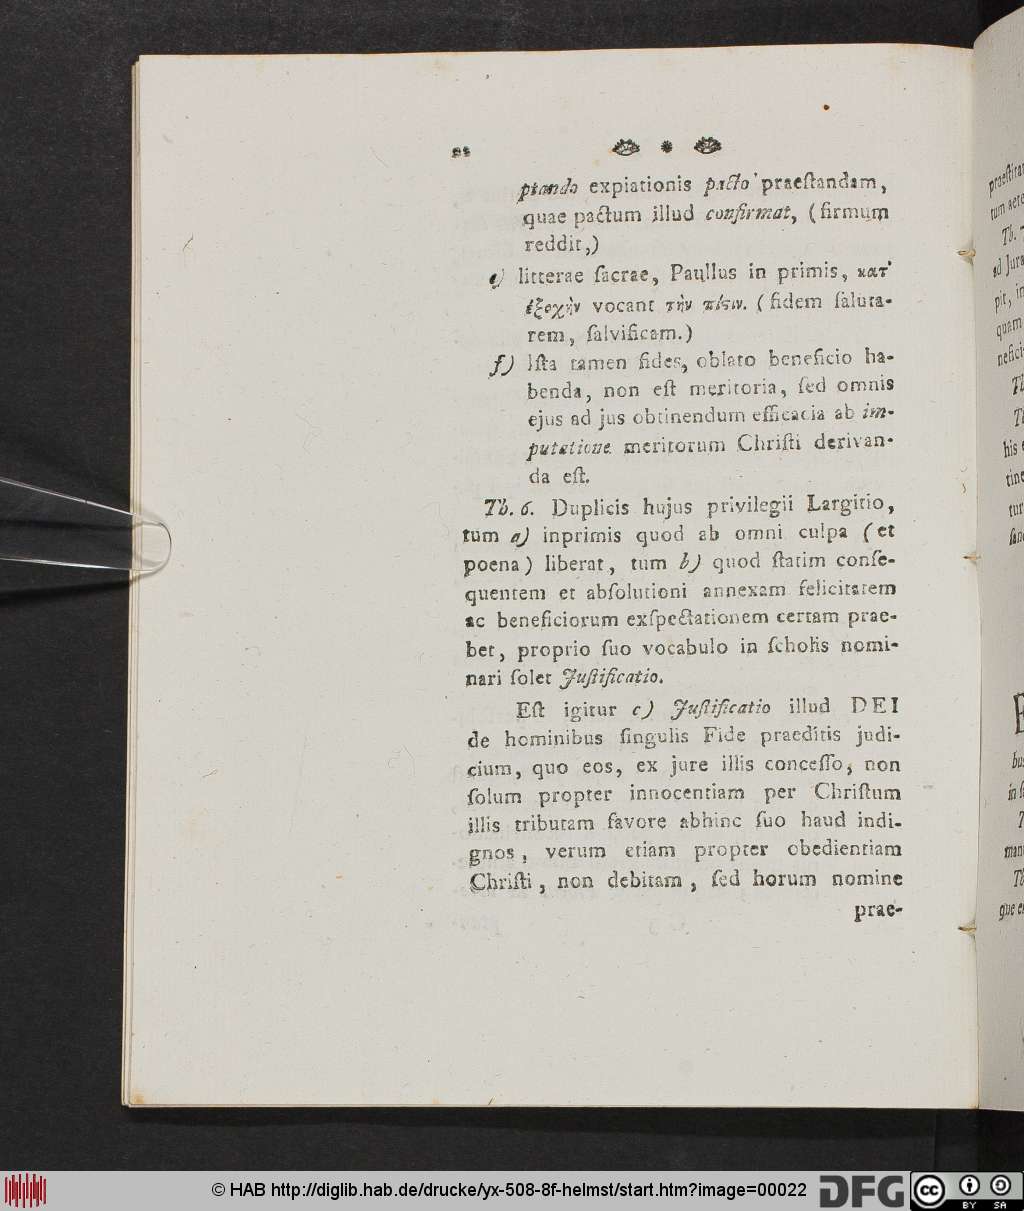 22
ptando expiationis pacto praeſtandam,
quae pactum illud confirmat, (firmum
reddit,)
e) litterae ſacrae, Paullus in primis, κατ'
ἐξοχὴν vocant τὴν πίϛιν. (fidem ſaluta-
rem, ſalvificam.)
f) Iſta tamen fides, oblato beneficio ha-
benda, non eſt meritoria, ſed omnis
ejus ad jus obtinendum efficacia ab im-
putatione meritorum Chriſti derivan-
da eſt.
Th. 6. Duplicis hujus privilegii Largitio,
tum a) inprimis quod ab omni culpa (et
poena) liberat, tum b) quod ſtatim conſe-
quentem et abſolutioni annexam felicitatem
ac beneficiorum exſpectationem certam prae-
bet, proprio ſuo vocabulo in ſcholis nomi-
nari ſolet Juſtificatio.
Eſt igitur c) Juſtificatio illud DEI
de hominibus ſingulis Fide praeditis judi-
cium, quo eos, ex jure illis conceſſo, non
ſolum propter innocentiam per Chriſtum
illis tributam favore abhinc ſuo haud indi-
gnos, verum etiam propter obedientiam
Chriſti, non debitam, ſed horum nomine
prae-
© HAB http://diglib.hab.de/drucke/yx-508-8f-helmst/start.htm?image=00022
DFG
cc
BY SA